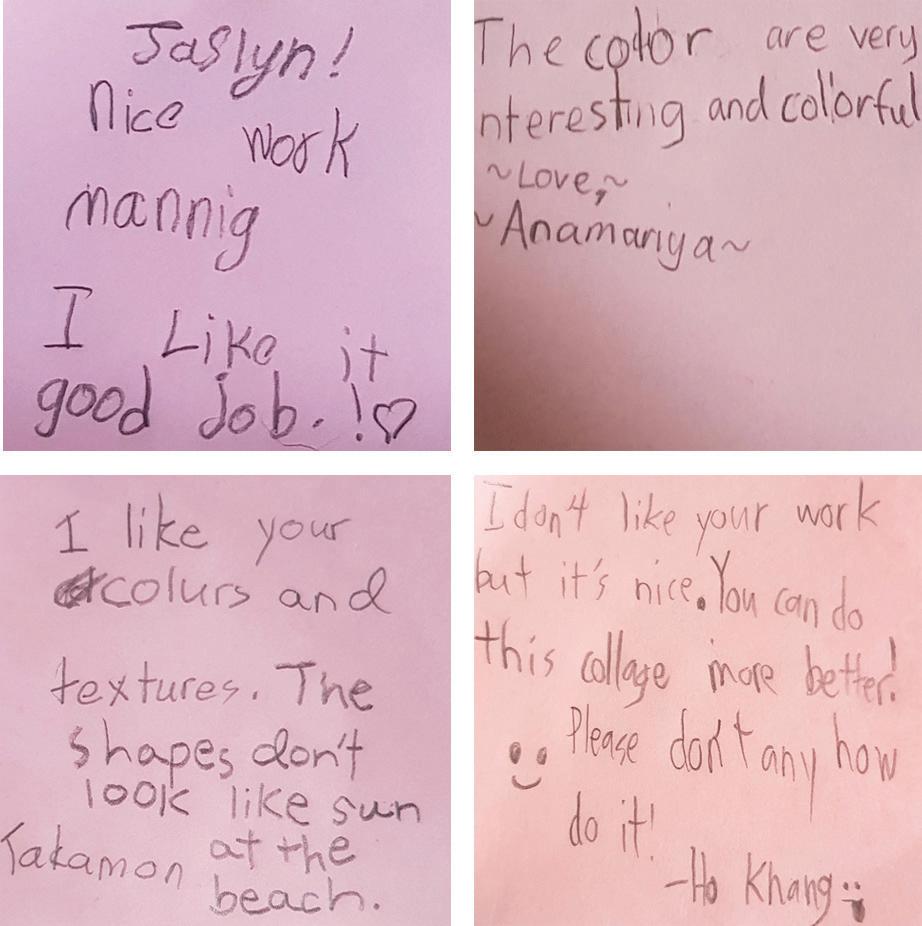 Jaslyn!
Nice work
mannig
I Like it
good job.!♡
The color are very
nteresting and colorful
~Love,~
~Anamariya~
I like your
colurs and
textures. The
shapes don't
look like sun
at the
Takamon
beach.
I don't like your work
but it's nice. You can do
this collage more better!
Please don't any how
do it!
-Ho Khang